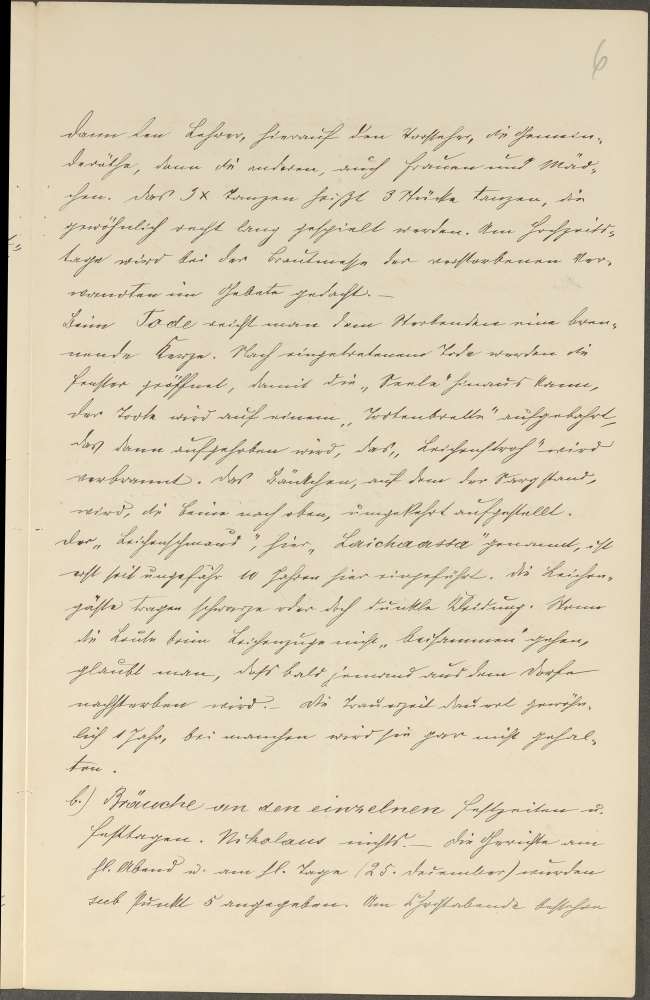 6
dann den Lehrer, hierauf den Vorsteher, die Gemein-
deräthe, dann die anderen, auch Frauen und Mäd-
chen. Das 3x Tanzen heißt 3 Stücke tanzen, die
gewöhnlich recht lang gespielt werden. Am Hochzeits-
tage wird bei der Brautmesse der verstorbenen Ver-
wandten im Gebete gedacht. —
Beim Tode reicht man dem Sterbenden eine bren-
nende Kerze. Nach eingetretenem Tode werden die
Fenster geöffnet, damit die „Seele" hinaus kann,
der Todte wird auf einem „Todtenbrette" aufgebahrt,
das dann aufgehoben wird, das „Leichenstroh" wird
verbrannt. Das Bänkchen, auf dem der Sarg stand,
wird, die Beine nach oben, umgekehrt aufgestellt.
Der „Leichenschmaus", hier „Laichaassa" genannt, ist
erst seit ungefähr 10 Jahren hier eingeführt. Die Leichen-
gäste tragen schwarze oder doch dunkle Kleidung. Wenn
die Leute beim Leichenzuge nicht „beisammen" gehen,
glaubt man, dass bald jemand aus dem Dorfe
nachsterben wird. — Die Trauerzeit dauert gewöhn-
lich 1 Jahr, bei manchen wird sie gar nicht gehal-
ten.
b.) Bräuche an den einzelnen Festzeiten u.
Festtagen. Nikolaus nichts. — Die Gerichte am
hl. Abend u. am hl. Tage (25. December) wurden
sub Punkt 5 angegeben. Am Christabende bestehen